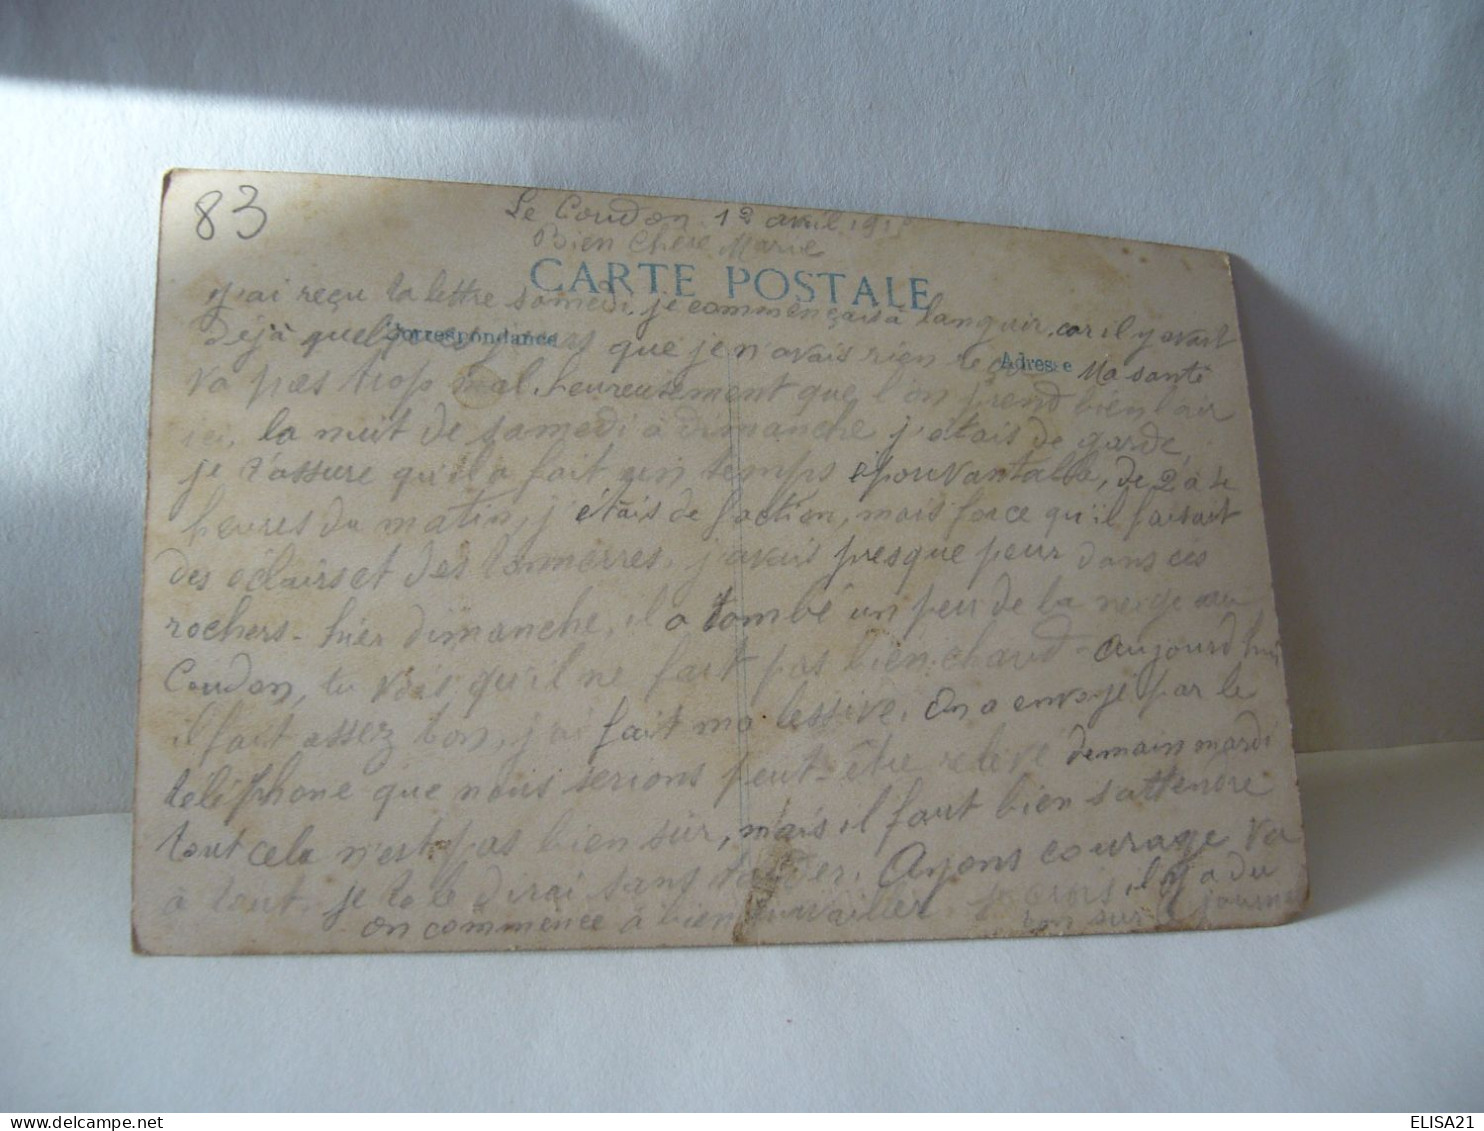 83
Le Coudon 12 avril 191
Bien Chère Marie
CARTE POSTALE
J'ai reçu ta lettre samedi, je commençais à languir, car il y avait
Correspondance
Adresse
Déjà quelques jours que je n'avais rien Ma santé
va pas trop mal, heureusement que l'on prend bien l'air
ici, la nuit de samedi à dimanche j'étais de garde,
je t'assure qu'il a fait un temps épouvantable, de 2 à 4
heures du matin, j'étais de faction, mais force qu'il faisait
des éclairs et des tonnerres, j'avais presque peur dans ces
rochers - hier dimanche, il a tombé un peu de la neige au
Coudon, tu vois qu'il ne fait pas bien chaud - aujourd'hui
il fait assez bon, j'ai fait ma lessive. On a envoyé par le
téléphone que nous serions peut-être relevé demain mardi
tout cela n'est pas bien sûr, mais il faut bien s'attendre
à tout. je te le dirai sans tarder. Ayons courage va
on commence à bien travailler, je crois, il y a du
bon sur le journal
ELISA21